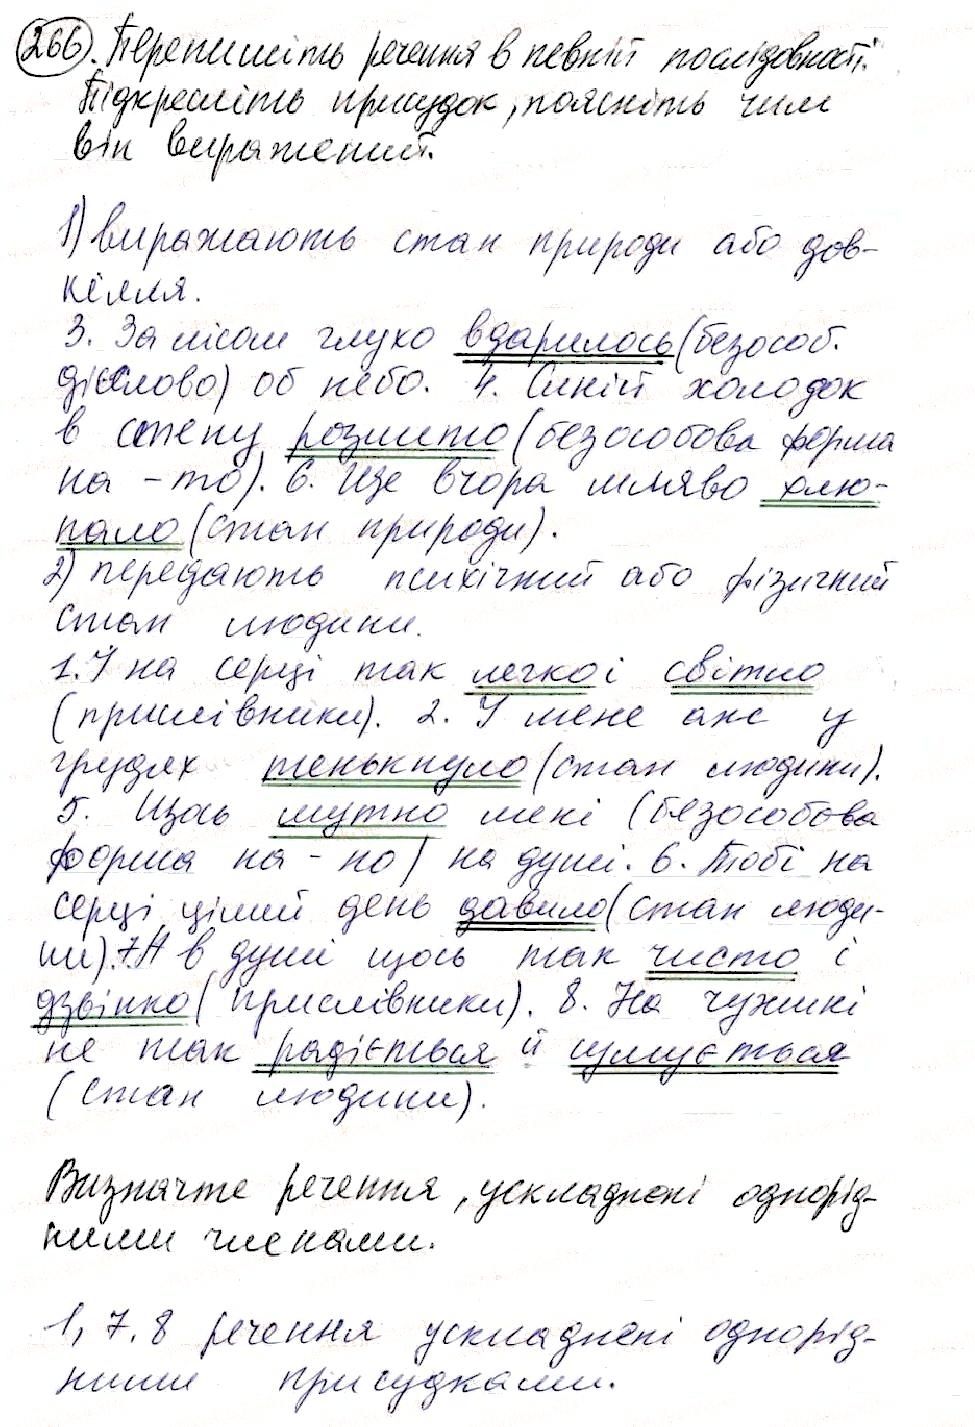 266. Перепишіть речення в певній послідовності.
Підкресліть присудок, поясніть чим
він виражений.
1) виражають стан природи або дов-
кілля.
3. За лісом глухо вдарилось (безособ.
дієслово) об небо. 4. Синій холодок
в степу розлито (безособова форма
на -то). 6. Ще вчора мляво хлю-
пало (стан природи).
2) передають психічний або фізичний
стан людини.
1. І на серці так легко і світло
(прислівники). 2. У мене аж у
грудях тенькнуло (стан людини).
5. Щось мутно мені (безособова
форма на -но) на душі. 6. Тобі на
серці цілий день давило (стан люди-
ни). 7. А в душі щось так чисто і
дзвінко (прислівники). 8. На чужині
не так радіється й сумується
(стан людини).
Визначте речення, ускладнені однорід-
ними членами.
1, 7, 8 речення ускладнені однорід-
ними присудками.